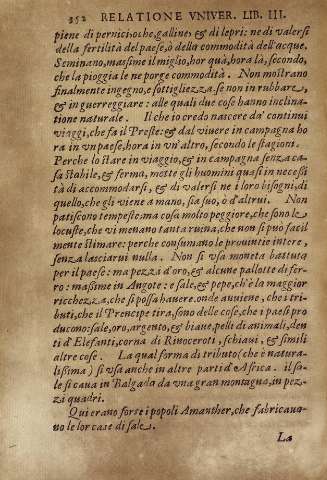 352 RELATIONE VNIVER. LIB. III.
piene di pernicioche, galline, & di lepri: ne di valersi
della fertilità del paese, ò della commodità dell'acque.
Seminano, massime il miglio, hor quà, hora là, secondo,
che la pioggia le ne porge commodità. Non mostrano
finalmente ingegno, e sottigliezza se non in rubbare,
& in guerreggiare: alle quali due cose hanno inclina-
tione naturale. Il che io credo nascere da' continui
viaggi, che fa il Preste: & dal viuere in campagna ho
ra in vn paese, hora in vn'altro, secondo le stagioni.
Perche lo stare in viaggio, & in campagna senza ca-
sa stabile, & ferma, mette gli huomini quasi in necessi
tà di accommodarsi, & di valersi ne i loro bisogni, di
quello, che gli viene a mano, sia suo, ò d'altrui. Non
patiscono tempeste: ma cosa molto peggiore, che sono le
locuste, che vi menano tanta ruina, che non si può facil
mente stimare: perche consumano le prouintie intere,
senza lasciarui nulla. Non si vsa moneta battuta
per il paese: ma pezzi d'oro, & alcune pallotte di fer-
ro: massime in Angote: e sale, & pepe, ch'è la maggior
ricchezza, che si possa hauere. onde auuiene, che i tri-
buti, che il Prencipe tira, sono delle cose, che i paesi pro
ducono: sale, oro, argento, & biaue, pelli di animali, den
ti d'Elefanti, corna di Rinoceroti, schiaui, & simili
altre cose. La qual forma di tributo (che è natura-
lissima) si vsa anche in altre parti d'Africa. il sa-
le si caua in Balgada da vna gran montagna, in pez-
zi quadri.
Qui erano forse i popoli Amanther, che fabricaua-
no le lor case di sale.
La